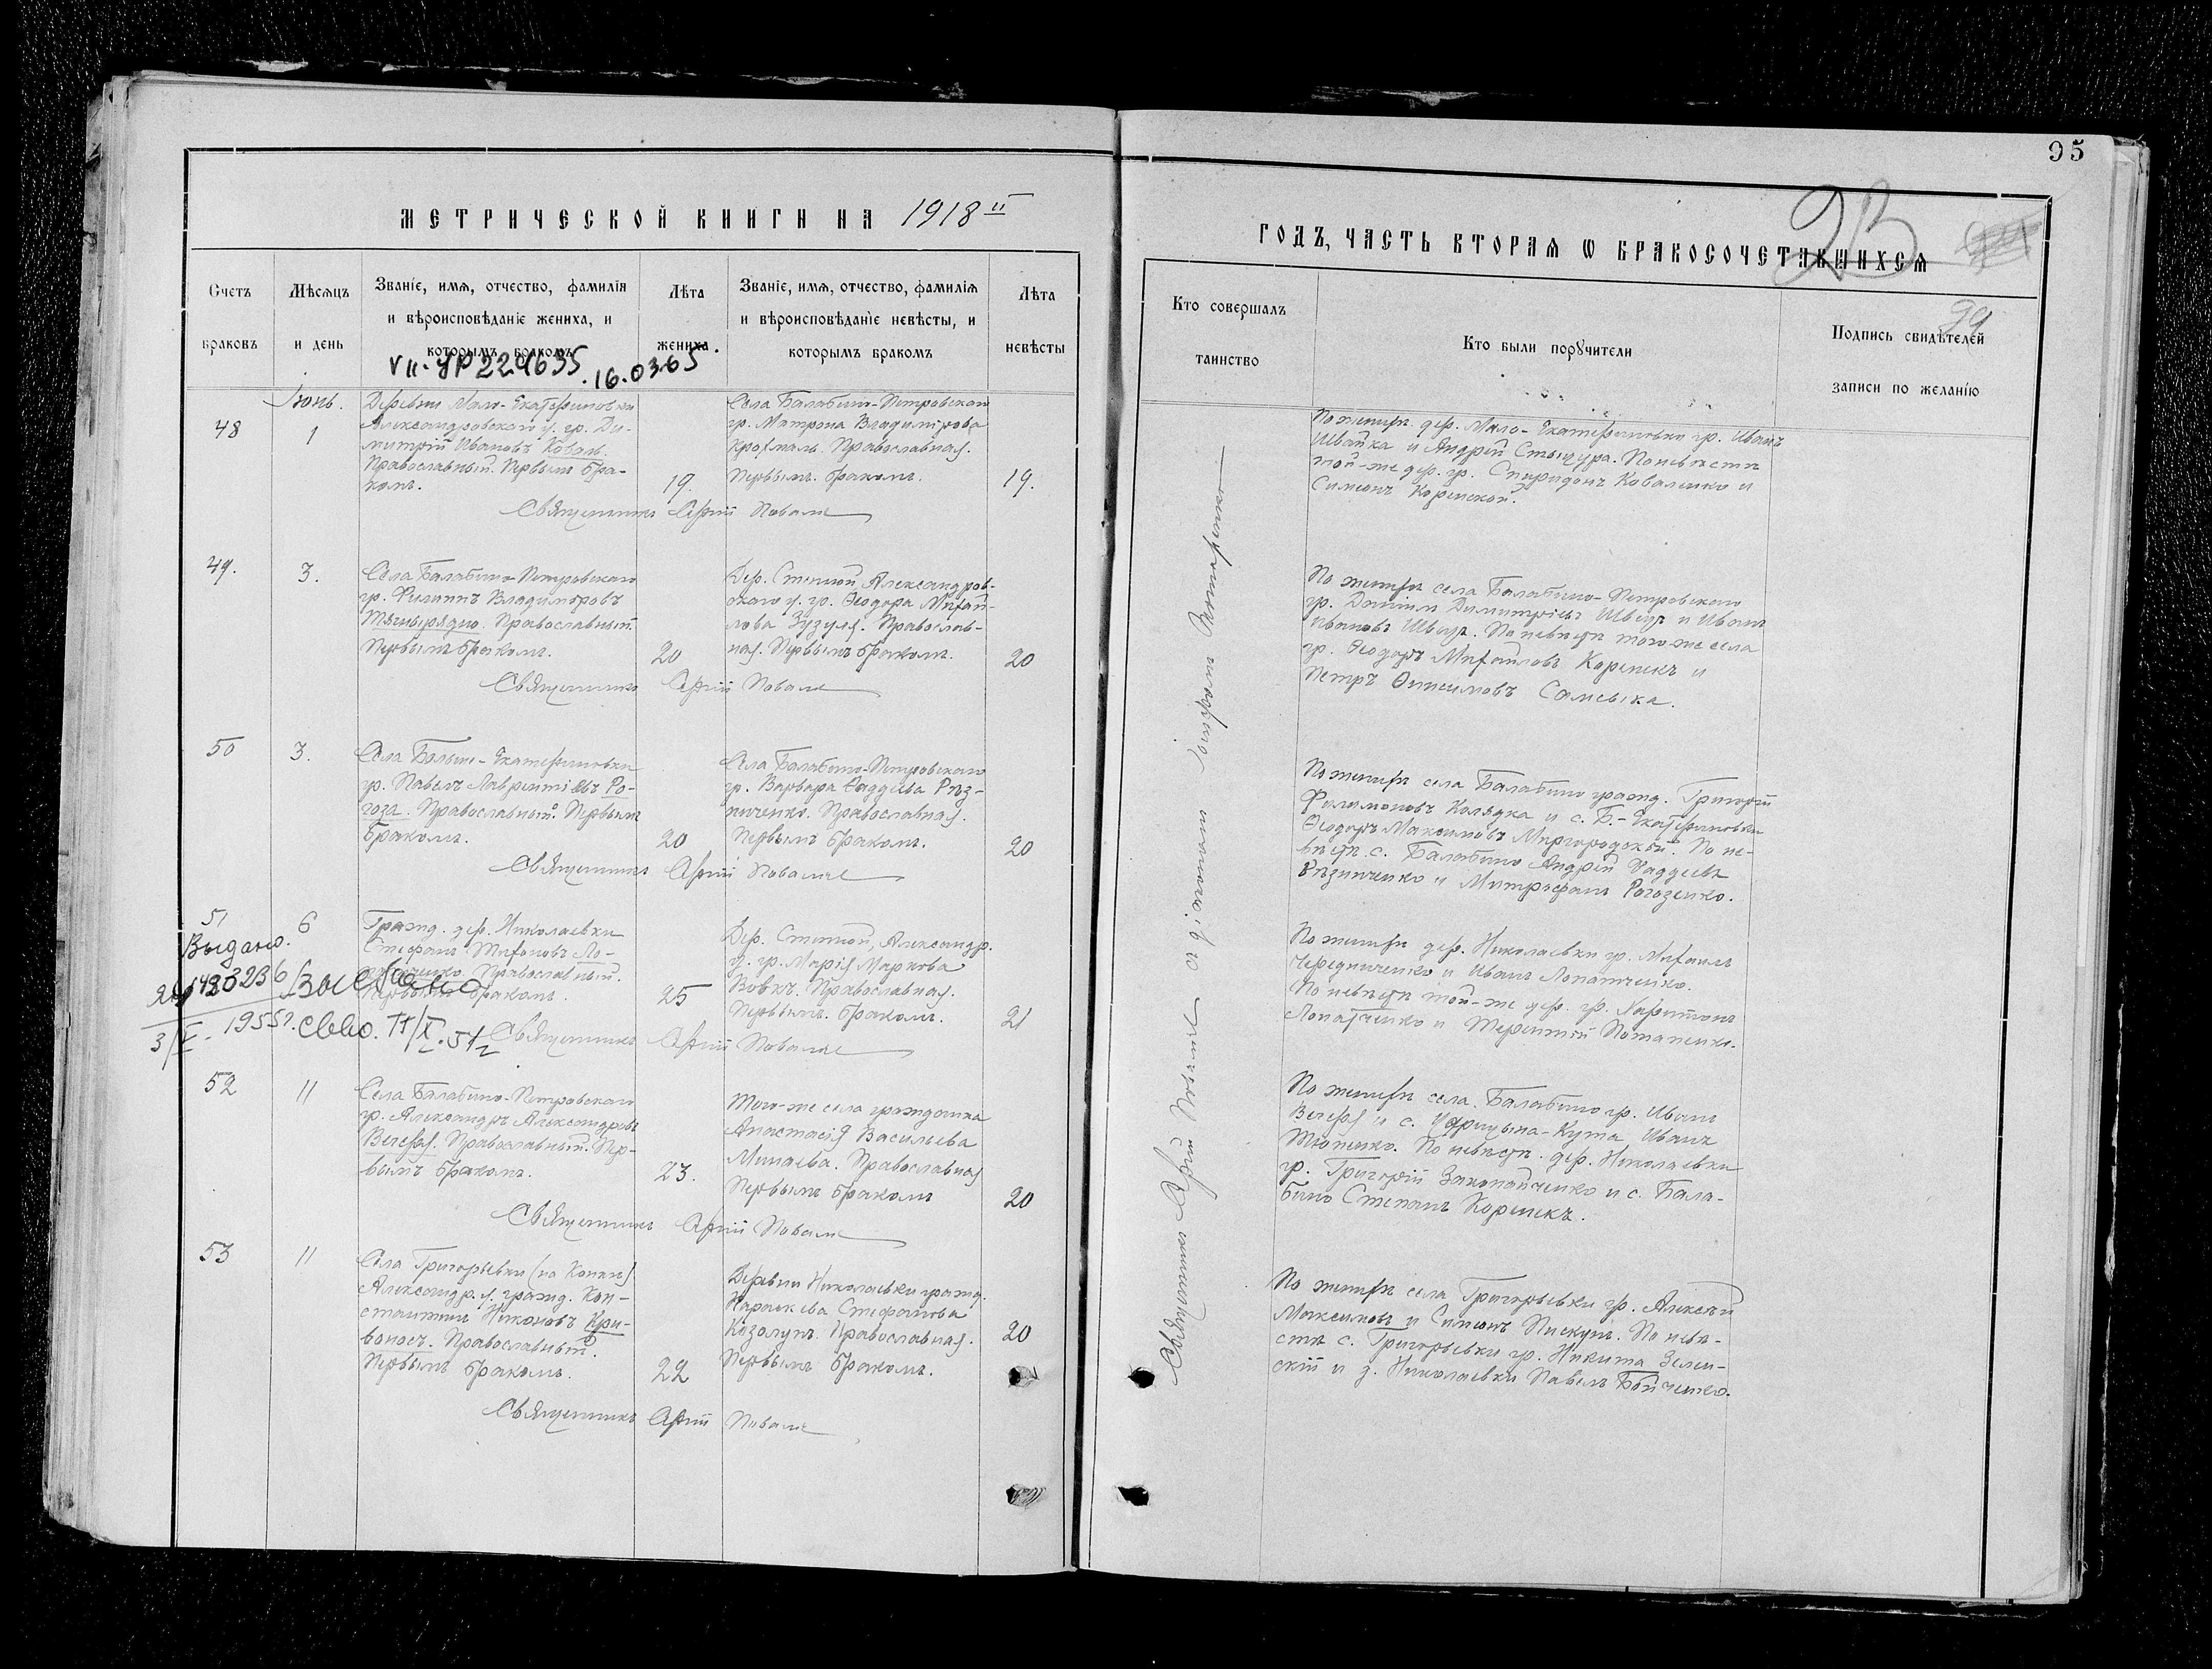 95
МЕТРИЧЕСКОЙ КНИГИ НА 1918 й
ГОДЪ, ЧАСТЬ ВТОРАЯ Ѡ БРАКОСОЧЕТАВШИХСЯ
23
94
Счетъ браковъ
Мѣсяцъ и день
Званіе, имя, отчество, фамилія
и вѣроисповѣданіе жениха, и
которымъ бракомъ
Лѣта жениха
Званіе, имя, отчество, фамилія
и вѣроисповѣданіе невѣсты, и
которымъ бракомъ
Лѣта невѣсты
Кто совершалъ таинство
Кто были поручители
Подпись свидѣтелей
записи по желанію
16.03.65
Іюнь.
48
1
Деревни Мало-Екатериновки
Александровскаго у. гр. Ди-
митрій Ивановъ Коваль.
Православный. Первымъ бра-
комъ.
19.
Села Балабино-Петровскаго
гр. Матрона Владимірова
Крохмаль. Православная.
Первымъ бракомъ.
19.
Священникъ Повала
По женихѣ дер. Мало-Екатериновки гр. Иванъ
Швайка и Андрей Стыцура. По невѣстѣ
той-же дер. гр. Спиридонъ Коваленко и
Симеонъ Коренской.
49.
3.
Села Балабино-Петровскаго
гр. Филиппъ Владиміровъ
Православный.
Первымъ бракомъ.
20
Дер. Степной, Александров-
скаго у. гр. Ѳеодора Михай-
лова Зузуля. Православ-
ная. Первымъ бракомъ.
20
Священникъ Повала
По женихѣ села Балабино-Петровскаго
гр. Даніилъ Димитріевъ Швецъ и Иванъ
Ивановъ Швецъ. По невѣстѣ того-же села
гр. Ѳеодоръ Михайловъ Коренекъ и
Петръ Онисимовъ
50
3.
Села Больше-Екатериновки
гр. Павелъ Лаврентіевъ Ро-
гоза. Православный. Первымъ
бракомъ.
20
Села Балабино-Петровскаго
гр. Варвара Ѳаддеева Рѣз-
ниченко. Православная.
Первымъ бракомъ.
20
Священникъ Повала
По женихѣ села Балабино гражд. Григорій
Филимоновъ Колядка и с. Б.-Екатериновки
Ѳеодоръ Максимовъ Миргородскій. По не-
вѣстѣ с. Балабино Андрей Ѳаддеевъ
Рѣзниченко и Митрофанъ Рогозенко.
51
6
Выдано.
1955г.
Гражд. дер. Николаевки
Стефанъ Тихоновъ Ло-
патченко. Православный.
Первымъ бракомъ.
25
Дер. Степной, Александр.
у. гр. Марія Маркова
Вовкъ. Православная.
Первымъ бракомъ.
21
Священникъ Повала
По женихѣ дер. Николаевки гр. Михаилъ
Чередниченко и Иванъ Лопатченко.
По невѣстѣ той-же дер. гр. Харитонъ
Лопатченко и Терентій Потапенко.
52
11
Села Балабино-Петровскаго
гр. Александръ Александровъ
Вечеря. Православный. Пер-
вымъ бракомъ.
23.
Того-же села гражданка
Анастасія Васильева
Минаева. Православная
Первымъ бракомъ
20
Священникъ Повала
По женихѣ села Балабино гр. Иванъ
Вечеря и с. Царицына-Кута Иванъ
Тютенко. По невѣстѣ дер. Николаевки
гр. Григорій и с. Бала-
бино Степанъ Коренекъ.
53
11
Села Григорьевки (на Конки)
Александр. у. гражд. Кон-
стантинъ Никоновъ Кри-
воносъ. Православный.
Первымъ бракомъ.
22
Деревни Николаевки гражд.
Параскева Стефанова
Козолупъ. Православная.
Первымъ бракомъ.
20
Священникъ Повала
По женихѣ села Григорьевки гр. Алексѣй
Максимовъ и Симеонъ Пискунъ. По невѣ-
стѣ с. Григорьевки гр. Никита Зелен-
скій и д. Николаевки Павелъ Бойченко.
Священникъ Повала съ діакономъ